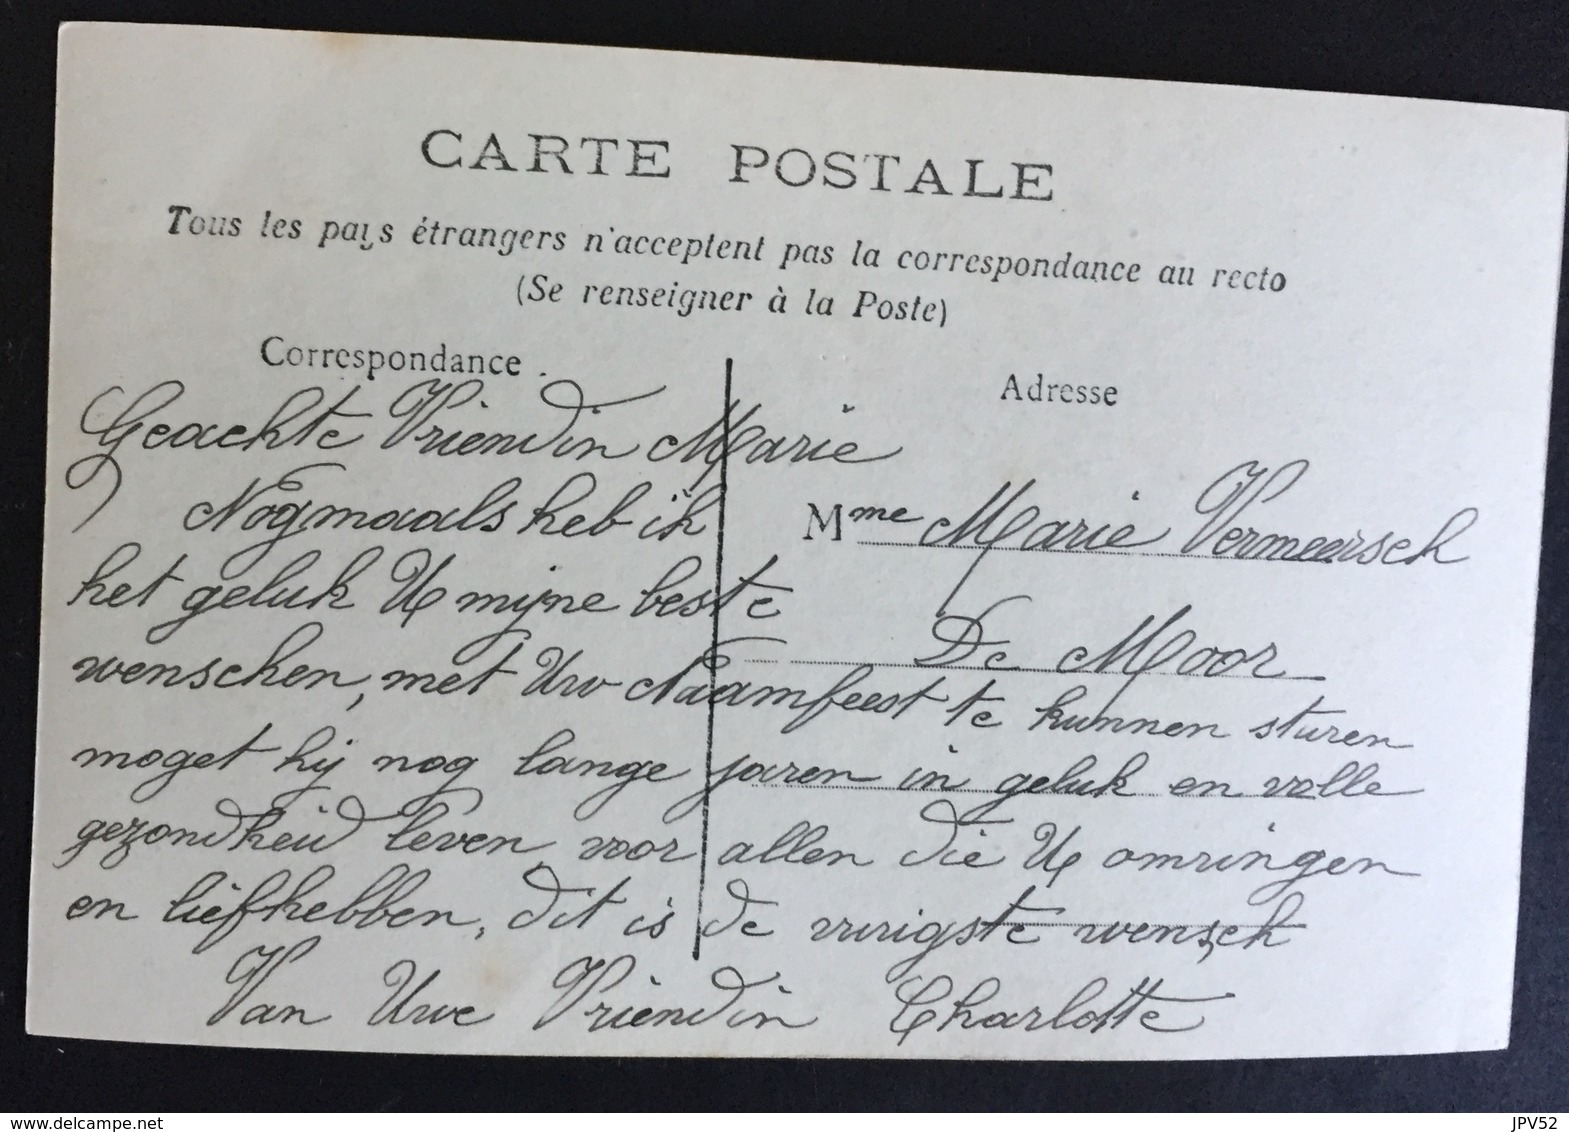 CARTE POSTALE
Tous les pays étrangers n'acceptent pas la correspondance au recto
(Se renseigner à la Poste)
Correspondance.
Adresse
Geachte Vriendin Marie
Nogmaals heb ik
het geluk U mijne beste
wenschen, met Uw Naamfeest te kunnen sturen
moget hij nog lange jaren in geluk en volle
gezondheid leven, voor allen die U omringen
en liefhebben, dit is de vurigste wensch
Van Uwe Vriendin Charlotte
Mme Marie Vermeersch
De Moor
delcampe.net
JPV52